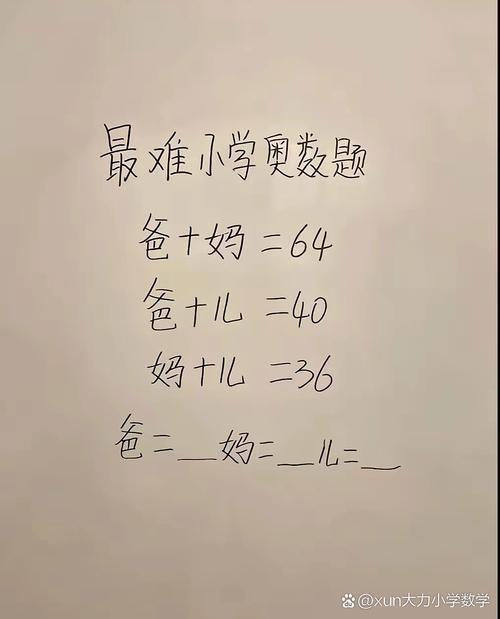 最难小学奥数题
爸+妈=64
爸+儿=40
妈+儿=36
爸=__妈=__儿=__
@xun大力小学数学